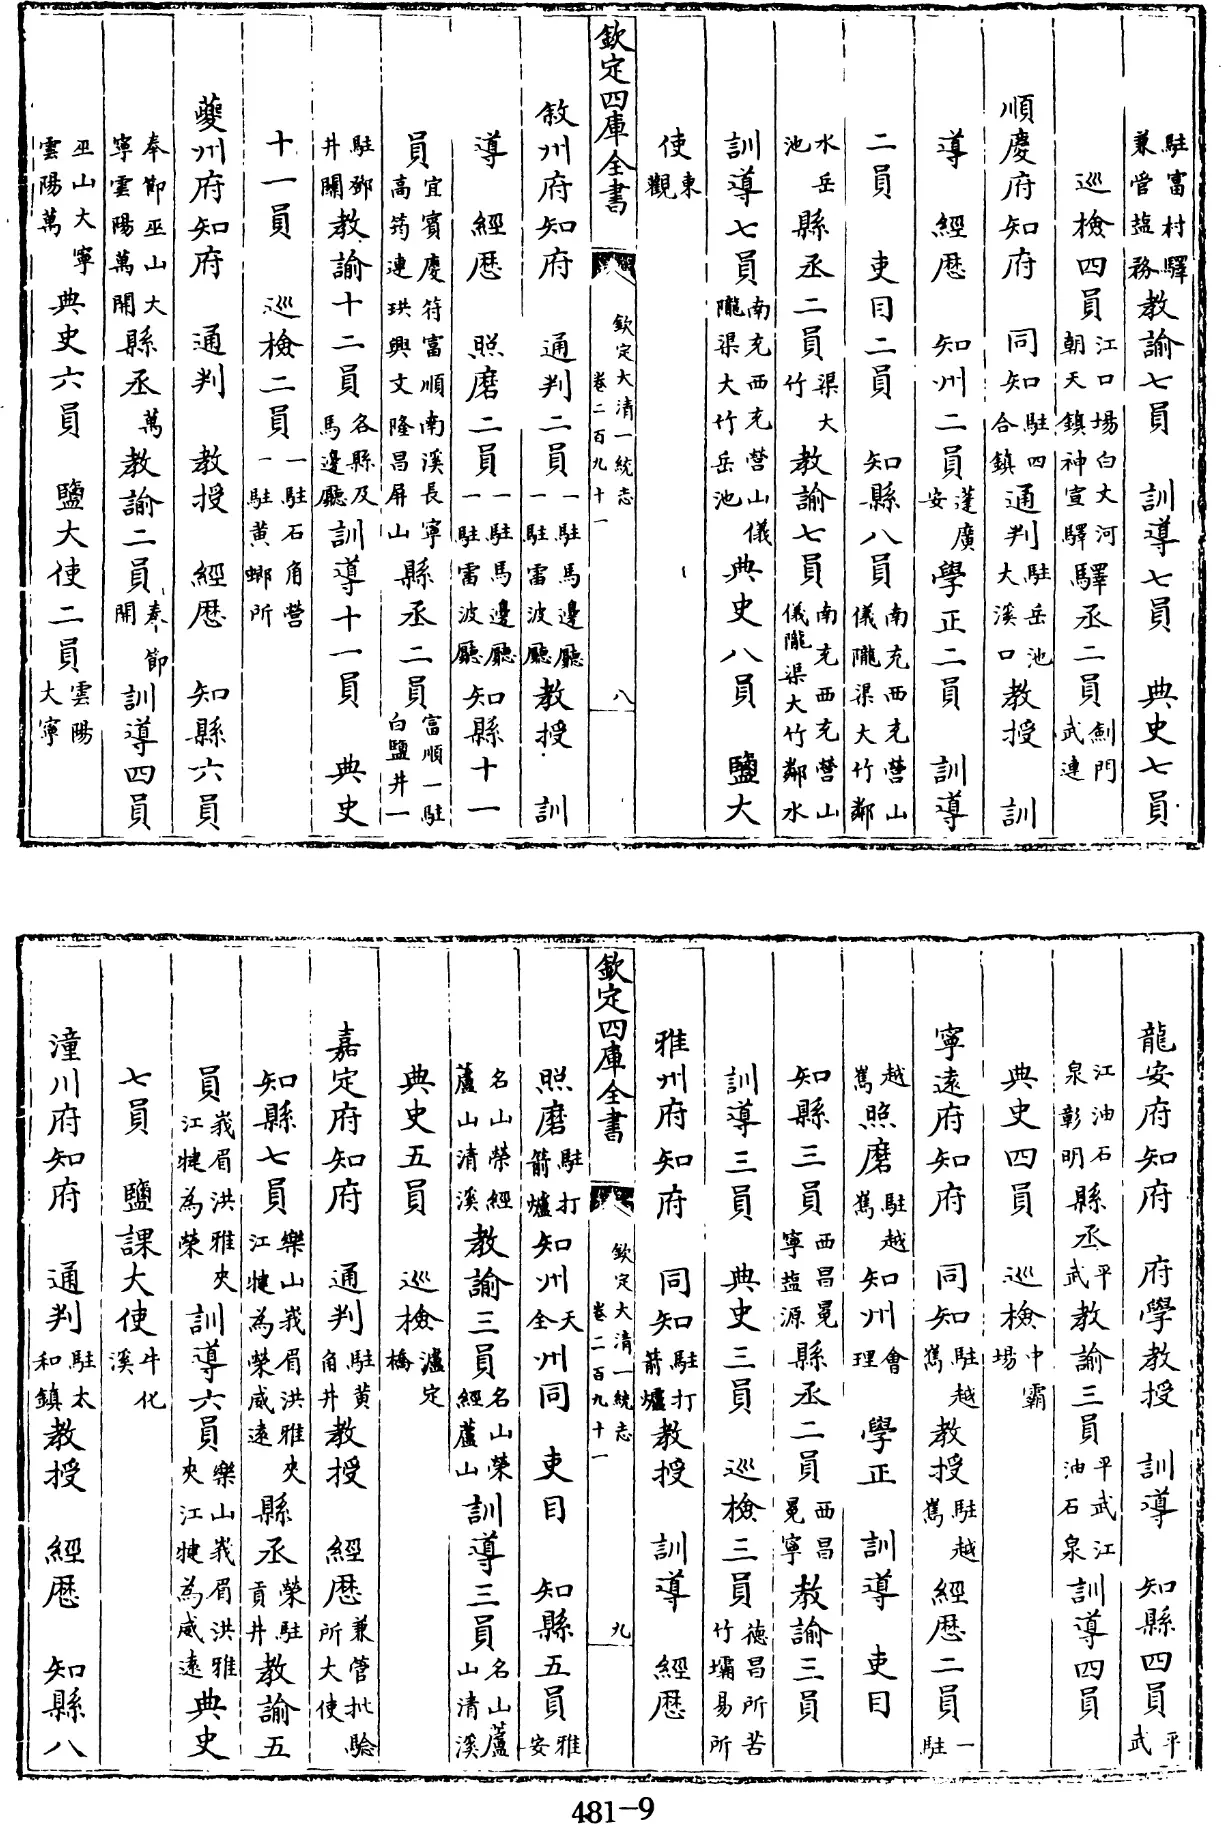 駐富村驛兼管塩務教諭七員　訓導七員　典史七員
巡檢四員江口場白大河朝天鎮神宣驛驛丞二員劍門武連
順慶府知府　同知駐四合鎮通判駐岳池大溪口教授　訓
導　經歴　知州二員蓬廣安學正二員　訓導
二員　吏目二員　知縣八員南充西充營山儀隴渠大竹鄰
水岳池縣丞二員渠大竹教諭七員南充西充營山儀隴渠大竹鄰水
訓導七員南充西充營山儀隴渠大竹岳池典史八員　鹽大
使東觀
欽定四庫全書　欽定大清一統志卷二百九十一　八
敘州府知府　通判二員一駐馬邊廳一駐雷波廳教授　訓
導　經歴　照磨二員一駐馬邊廳一駐雷波廳知縣十一
員宜賓慶符富順南溪長寧高筠連珙興文隆昌屏山縣丞二員富順一駐白鹽井一
駐鄧井關教諭十二員各縣及馬邊廳訓導十一員　典史
十一員　巡檢二員一駐石角營一駐黃螂所
夔州府知府　通判　教授　經歴　知縣六員
奉節巫山大寧雲陽萬開縣丞萬教諭二員奉節開訓導四員
巫山大寧雲陽萬典史六員　鹽大使二員雲陽大寧
龍安府知府　府學教授　訓導　知縣四員平武
江油石泉彰明縣丞平武教諭三員平武江油石泉訓導四員
典史四員　巡檢中霸場
寧遠府知府　同知駐越嶲教授駐越嶲經歴二員一駐
越嶲照磨駐越嶲知州會理　學正　訓導　吏目
知縣三員西昌冕寧塩源縣丞二員西昌冕寧教諭三員
訓導三員　典史三員　巡檢三員德昌所苦竹壩易所
雅州府知府　同知駐打箭爐教授　訓導　經歴
欽定四庫全書　欽定大清一統志卷二百九十一　九
照磨駐打箭爐知州天全州同　吏目　知縣五員雅安
名山榮經蘆山清溪教諭三員名山榮經蘆山訓導三員名山蘆山清溪
典史五員　巡檢瀘定橋
嘉定府知府　通判駐黃角井教授　經歴兼管批驗所大使
知縣七員樂山峩眉洪雅夾江犍為榮威遠縣丞榮駐貢井教諭五
員峩眉洪雅夾江犍為榮訓導六員樂山峩眉洪雅夾江犍為威遠典史
七員　鹽課大使牛化溪
潼川府知府　通判駐太和鎮教授　經歴　知縣八
481-9